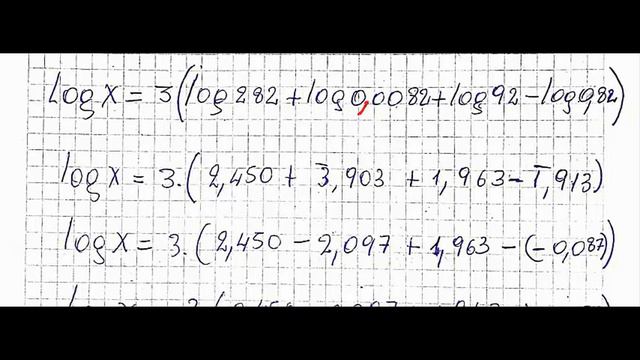 log x = 3(log 282 + log 0,0082 + log 92 - log 0,82)
log x = 3.(2,450 + 3̅,903 + 1,963 - 1̅,913)
log x = 3.(2,450 - 2,097 + 1,963 - (-0,087))